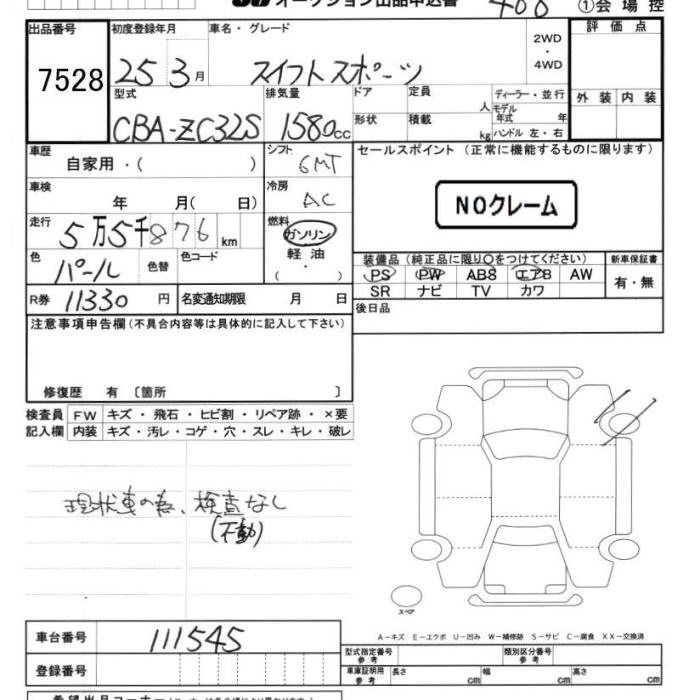 オークション出品申込書 ①会場控
出品番号 初度登録年月 車名・グレード 2WD・4WD 評価点
7528 25年3月 スイフトスポーツ
型式 排気量 ドア 定員 人 ディーラー・並行 外装 内装
モデル年式 年
CBA-ZC32S 1580cc 形状 積載 kg ハンドル 左・右
車歴 自家用・( ) シフト 6MT セールスポイント (正常に機能するものに限ります)
車検 年 月( 日) 冷房 AC NOクレーム
走行 5万5千876km 燃料 ガソリン
軽油
・( )
色 パール 色替 色コード 装備品(純正品に限り○をつけてください) 新車保証書
PS PW ABS エアB AW 有・無
SR ナビ TV カワ
R券 11330円 名変通知期限 月 日 後日品
注意事項申告欄(不具合内容等は具体的に記入して下さい)
修復歴 有 〔箇所 〕
検査員 FW キズ・飛石・ヒビ割・リペア跡・×要
記入欄 内装 キズ・汚レ・コゲ・穴・スレ・キレ・破レ
現状車の為、検査なし
(不動)
スペア
A-キズ E-エクボ U-凹み W-補修跡 S-サビ C-腐食 XX-交換済
車台番号 111545
型式指定番号 参考 類別区分番号 参考
登録番号 車庫証明用 参考 長さ cm 幅 cm 高さ cm
希望出品コーナー